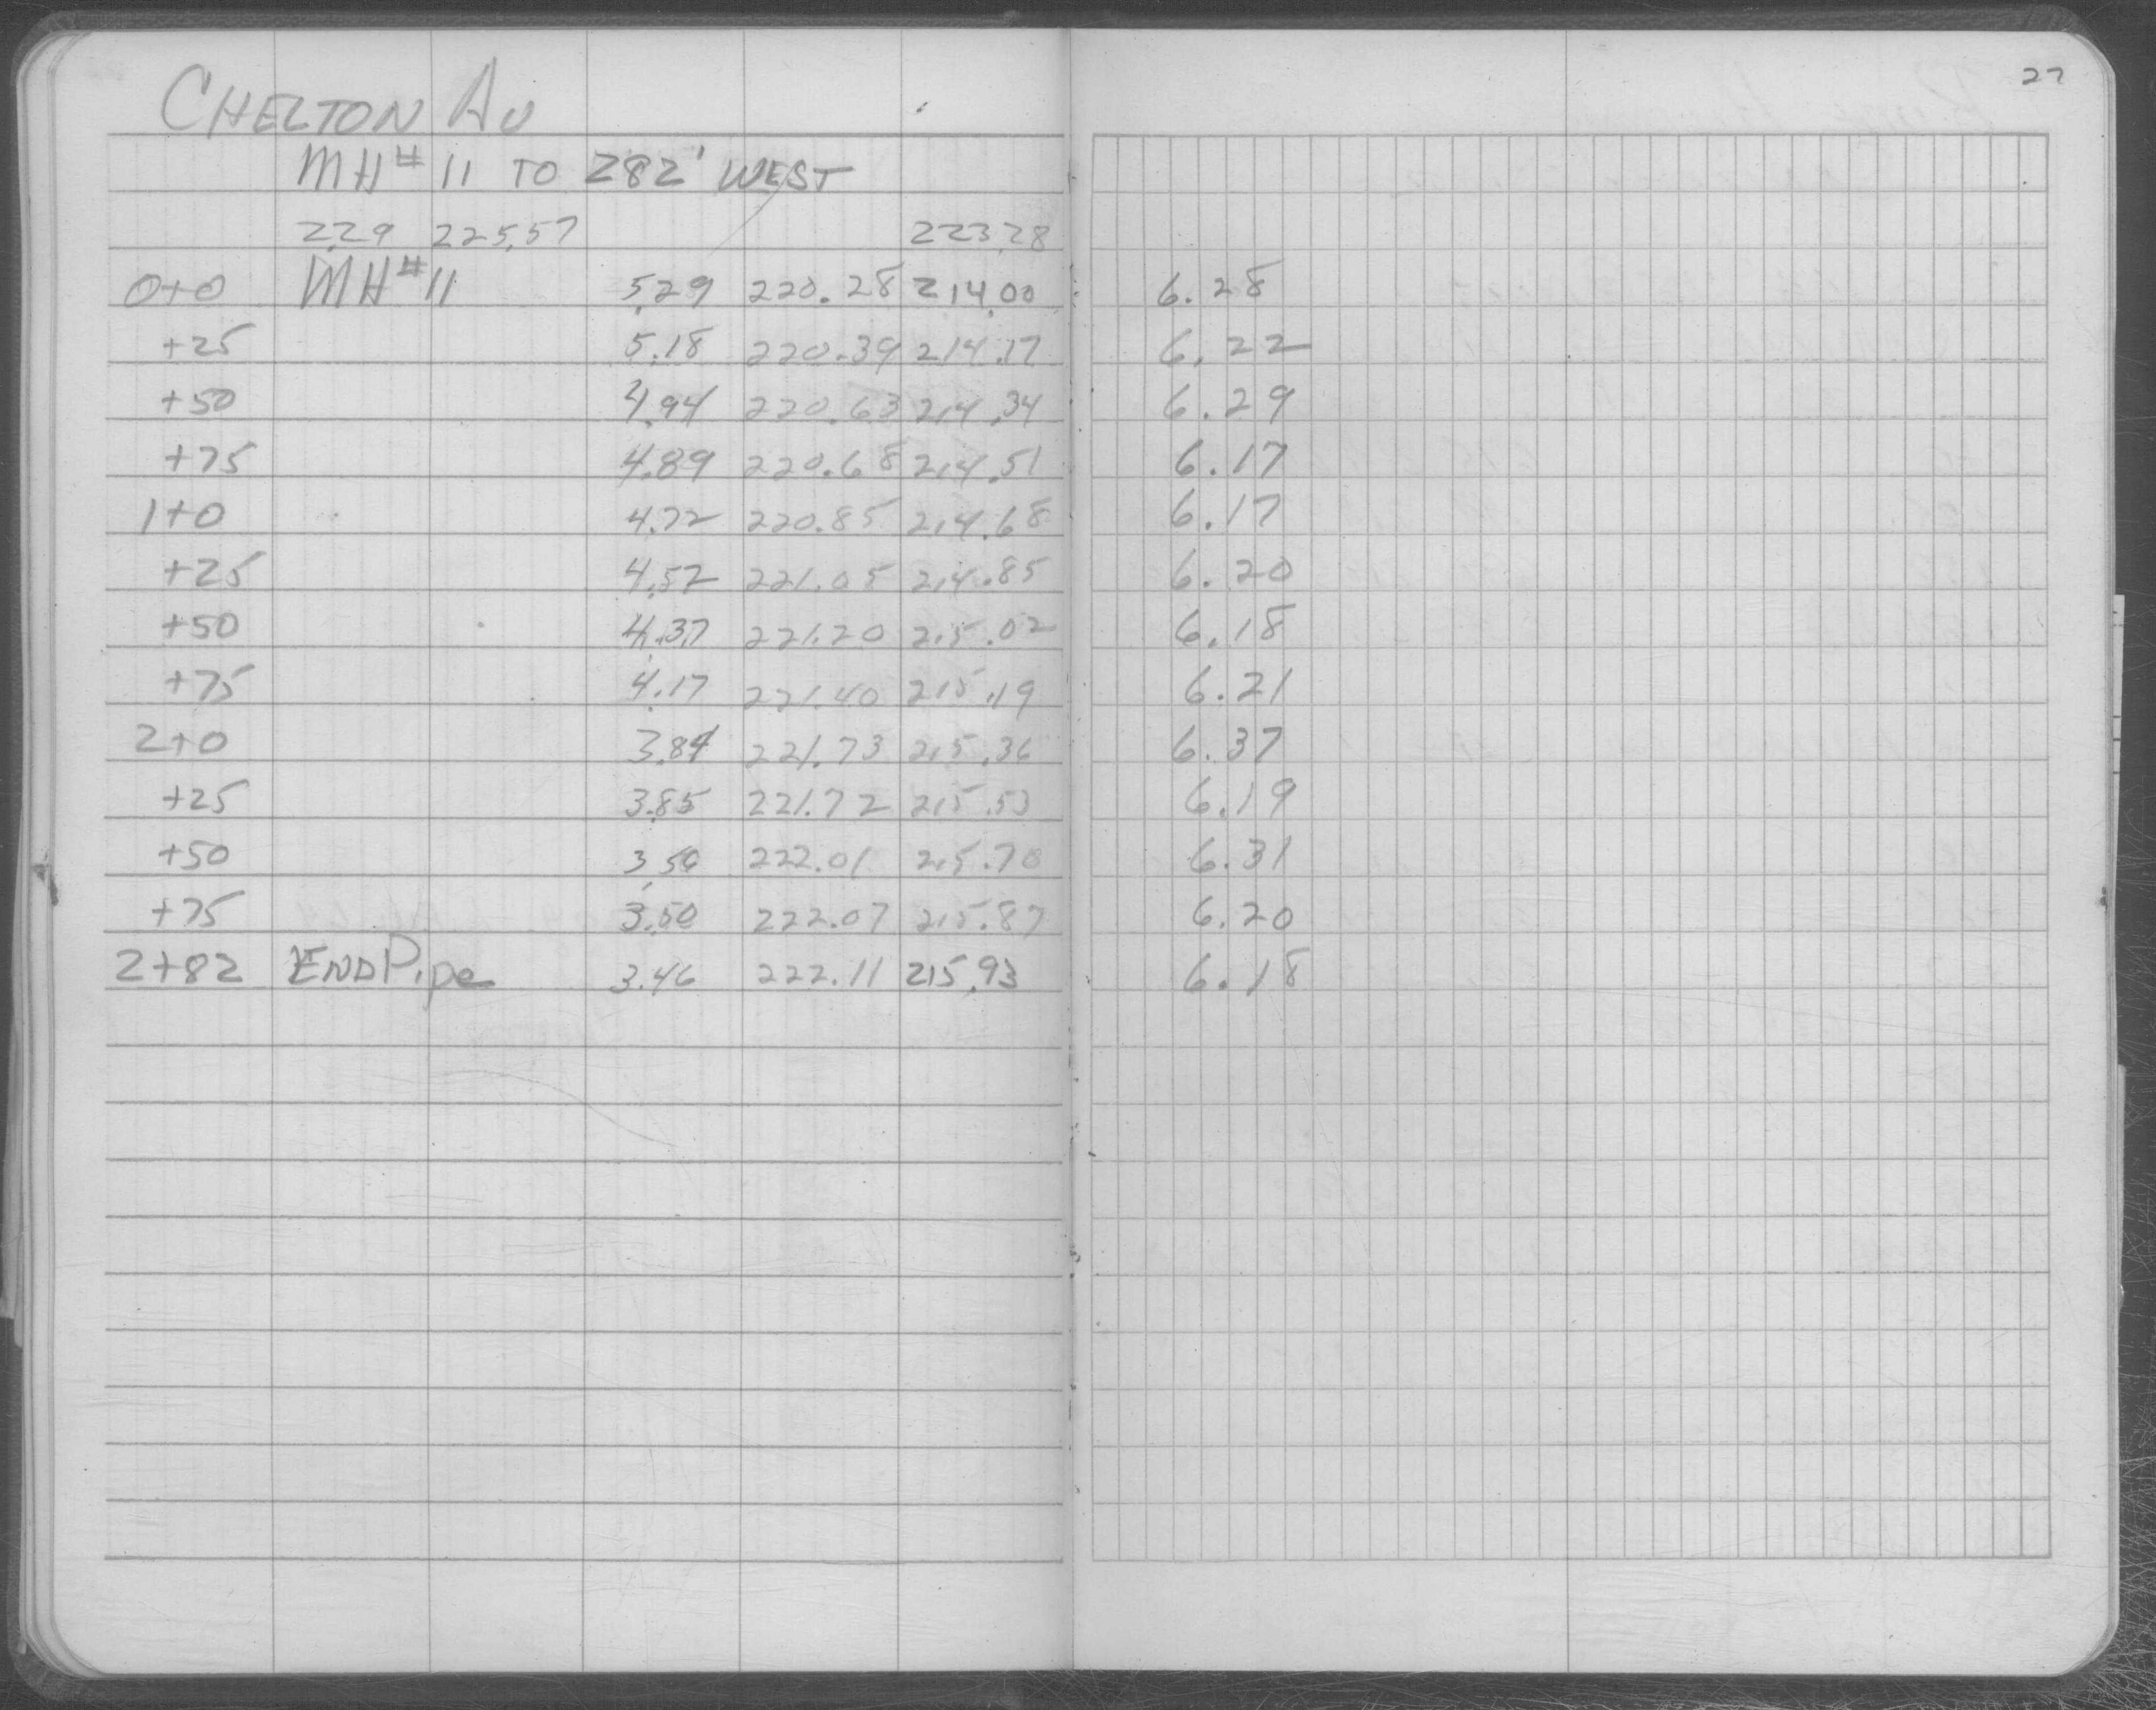 27
CHELTON AV
MH# 11 TO 282' WEST
2.29 225.57 223.28
0+0 MH# 11 5.29 220.28 214.00 6.28
+25 5.18 220.39 214.17 6.22
+50 4.94 220.63 214.34 6.29
+75 4.89 220.68 214.51 6.17
1+0 4.72 220.85 214.68 6.17
+25 4.52 221.05 214.85 6.20
+50 4.37 221.20 215.02 6.18
+75 4.17 221.40 215.19 6.21
2+0 3.84 221.73 215.36 6.37
+25 3.85 221.72 215.53 6.19
+50 3.56 222.01 215.70 6.31
+75 3.50 222.07 215.87 6.20
2+82 END Pipe 3.46 222.11 215.93 6.18